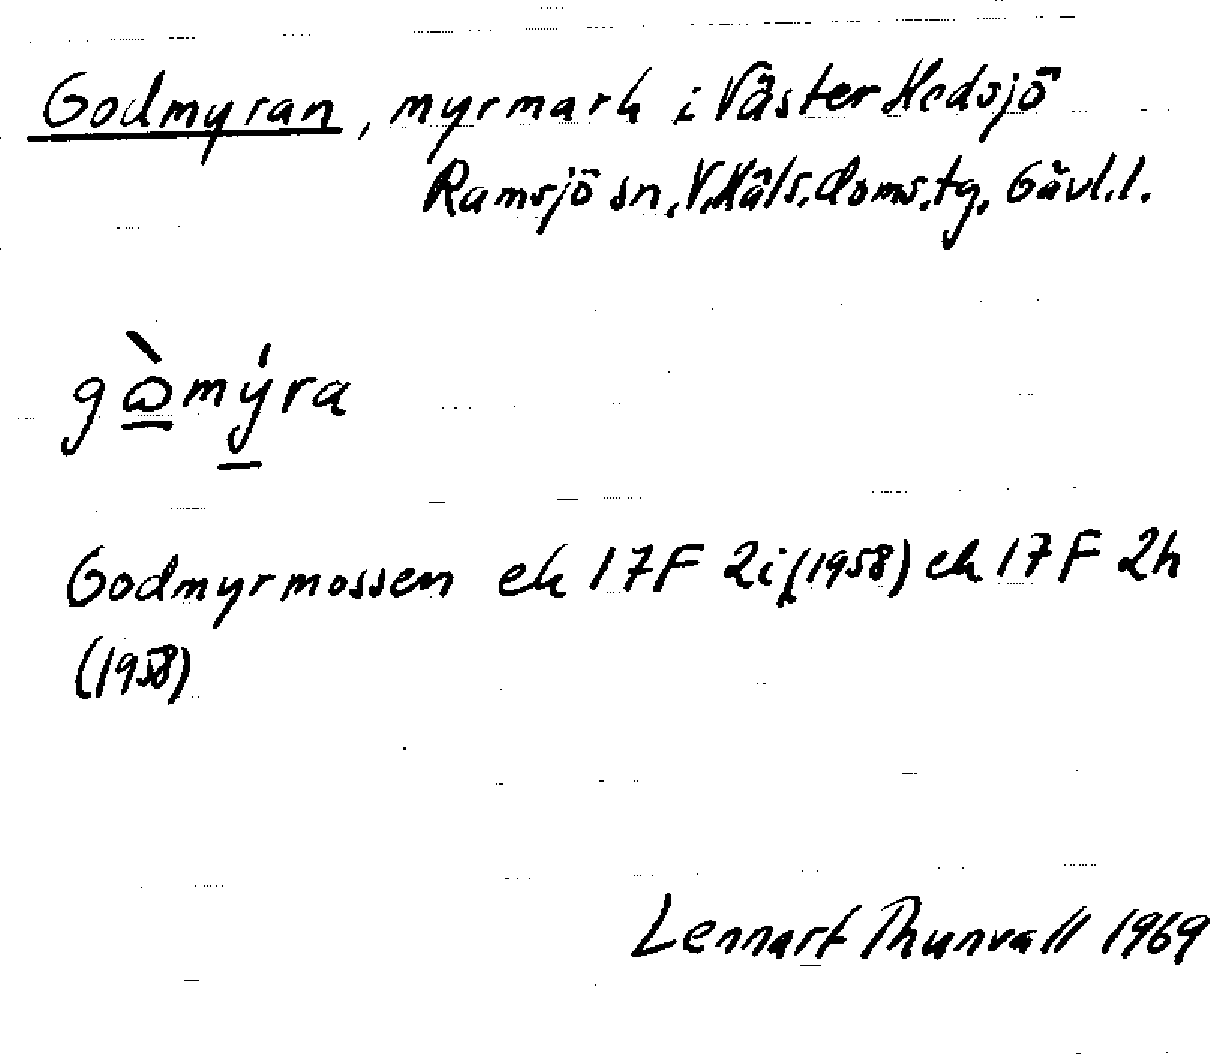 Godmyran, myrmark i Väster Hedsjö
Ramsjö sn, V. Häls. doms. tg. Gävl. l.
gò̱mý̱ra
Godmyrmossen ek 17F 2i, (1958) ek 17F 2h
(1958)
Lennart Thunvall 1969